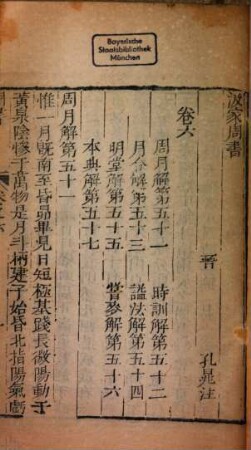 Bayerische
Staatsbibliothek
München
汲冢周書
晉 孔晁注
卷六
周月解第五十一 時訓解第五十二
月令解第五十三 諡法解第五十四
明堂解第五十五 嘗麥解第五十六
本典解第五十七
周月解第五十一
惟一月既南至昏昴畢見日短極基踐長微陽動于
黃泉陰慘于萬物是月斗柄建子始昏北指陽氣虧